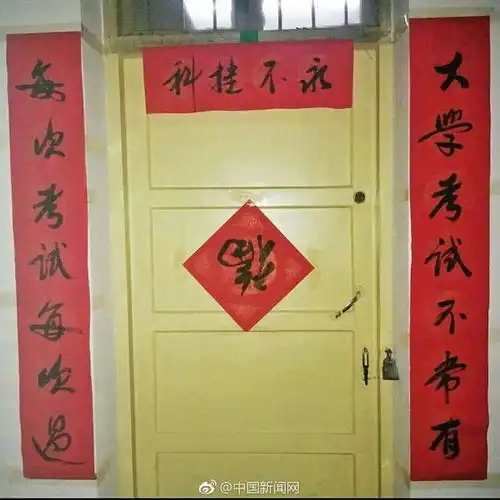 永不挂科
大学考试不常有
每次考试每次过
福
@中国新闻网